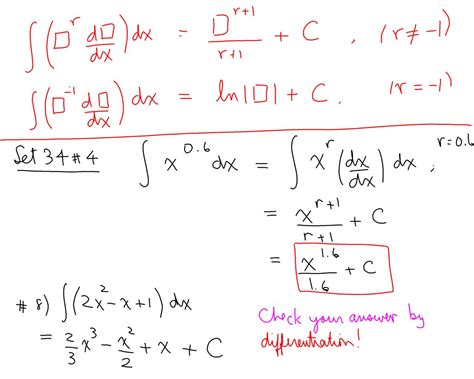 ∫(□^r d□/dx) dx = □^(r+1)/(r+1) + C , (r ≠ -1)
∫(□^-1 d□/dx) dx = ln|□| + C. (r = -1)
Set 34 #4 ∫ x^0.6 dx = ∫ x^r (dx/dx) dx , r=0.6
= x^(r+1)/(r+1) + C
= x^1.6/1.6 + C
#8) ∫(2x^2 - x + 1) dx
= 2/3 x^3 - x^2/2 + x + C
Check your answer by
differentiation!